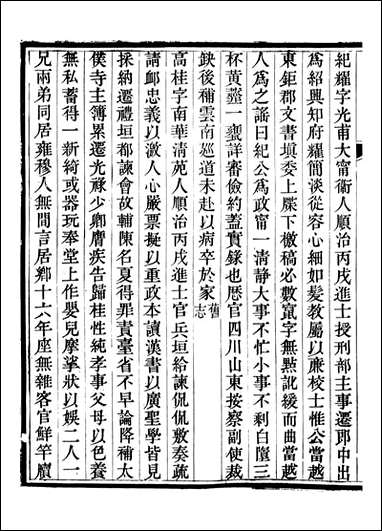 紀耀字光甫大甯衞人順治丙戌進士授刑部主事遷郎中出
爲紹興知府耀簡淡從容心細如髮教屬以廉棱士惟公當越
東鉅郡文書填委上牒下檄稿必數竄字無點訛緩而曲當越
人爲之謠曰紀公爲政甯一清靜大事不忙小事不剩白墮三
杯黃虀一甕詳審儉約蓋實錄也歷官四川山東按察副使裁
缺後補雲南巡道未赴以病卒於家舊志
高桂字南華清苑人順治丙戌進士官兵垣給諫侃侃敷奏疏
請卹忠義以激人心嚴票擬以重政本讀漢書以廣聖學皆見
採納遷禮垣都諫會故輔陳名夏得罪責臺省不早論降補太
僕寺主簿累遷光祿少卿膺疾告歸桂性純孝事父母以色養
無私蓄得一新綺或器玩奉堂上作嬰兒摩挲狀以娛二人一
兄兩弟同居雍穆人無間言居鄉十六年座無雜客官鮮竿牘